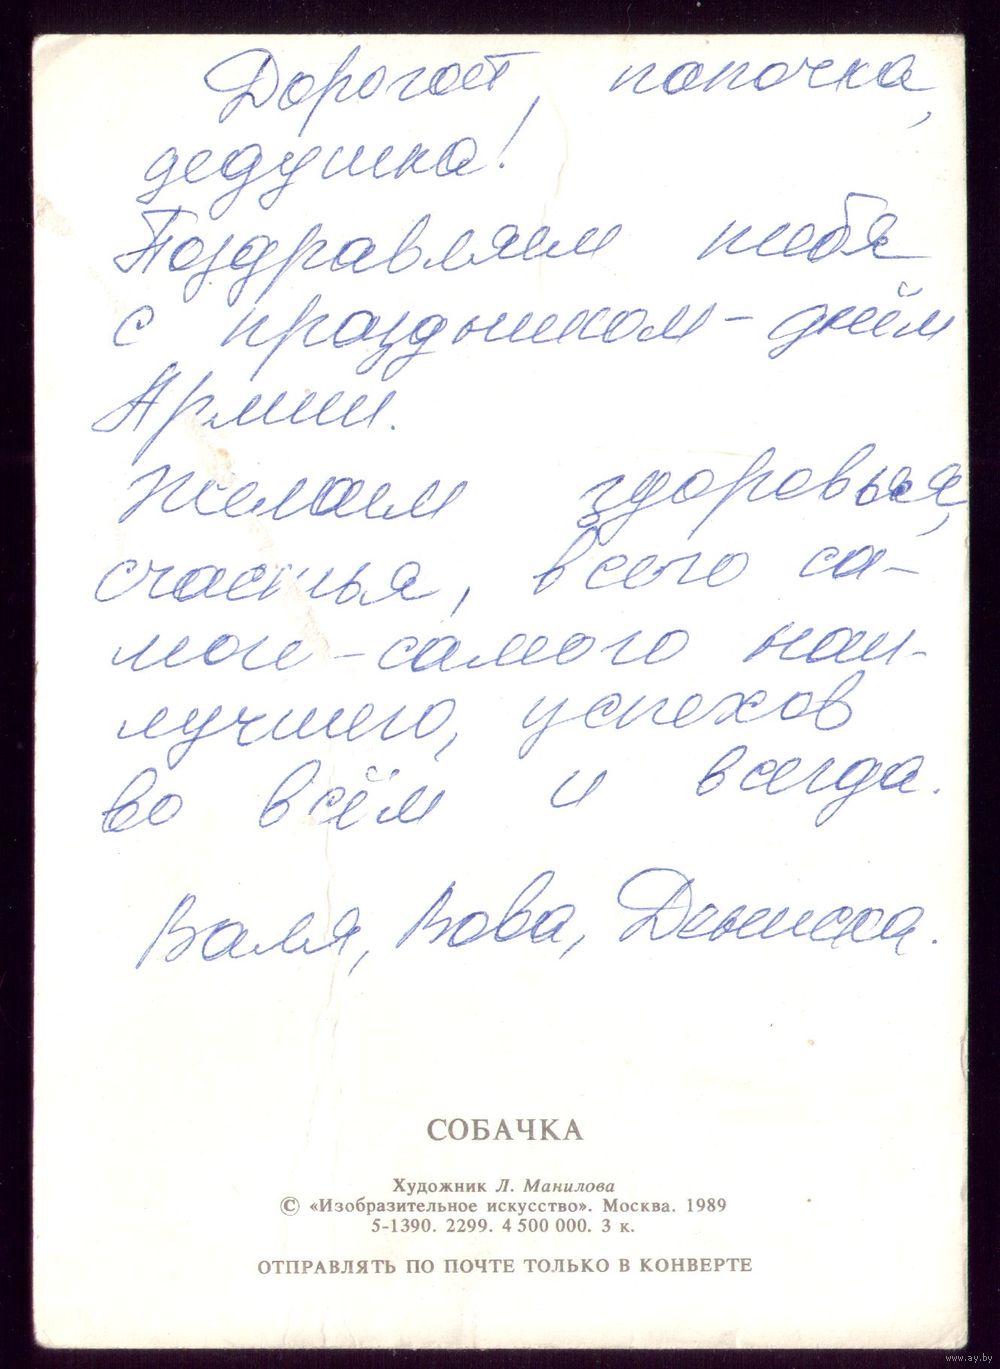 Дорогой, папочка,
дедушка!
Поздравляем тебя
с праздником - днём
Армии.
Желаем здоровья,
счастья, всего са-
мого-самого наи-
лучшего, успехов
во всём и всегда.
Валя, Вова, Дениска.
СОБАЧКА
Художник Л. Манилова
© «Изобразительное искусство». Москва. 1989
5-1390. 2299. 4 500 000. 3 к.
ОТПРАВЛЯТЬ ПО ПОЧТЕ ТОЛЬКО В КОНВЕРТЕ
www.ay.by